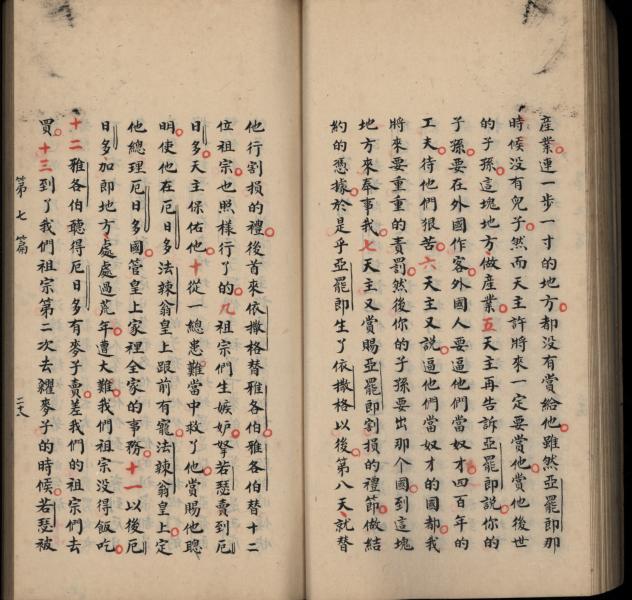 産業連一步一寸的地方都没有賞給他雖然亞罷郎那
時候没有兒子然而天主許將來一定要賞他當他後世
的子孫這塊地方做産業五天主再告訴亞罷郎説你的
子孫要在外國作客外國人要逼他們當奴才四百年的
工夫待他們狠苦六天主又説逼他們當奴才的國都我
將來要重重的責罰然後你的子孫要出那个國到這塊
地方來奉事我七天主又賞賜亞罷郎割損的禮節做結
約的憑據於是乎亞罷郎生了依撒格以後第八天就替
他行割損的禮後首來依撒格替雅各伯雅各伯替十二
位祖宗也照樣行了的九祖宗們生嫉妒拏若瑟賣到厄
日多天主保佑他十從一總患難當中救了他賞賜他聰
明使他在厄日多法辣翁皇上跟前有寵法辣翁皇上定
他總理厄日多國管皇上家裡全家的事務十一以後厄
日多加郎地方處處過荒年遭大難我們祖宗没得飯吃
十二雅各伯聽得厄日多有麥子賣差我們的祖宗們去
買十三到了我們祖宗第二次去糴麥子的時候若瑟被
第七篇